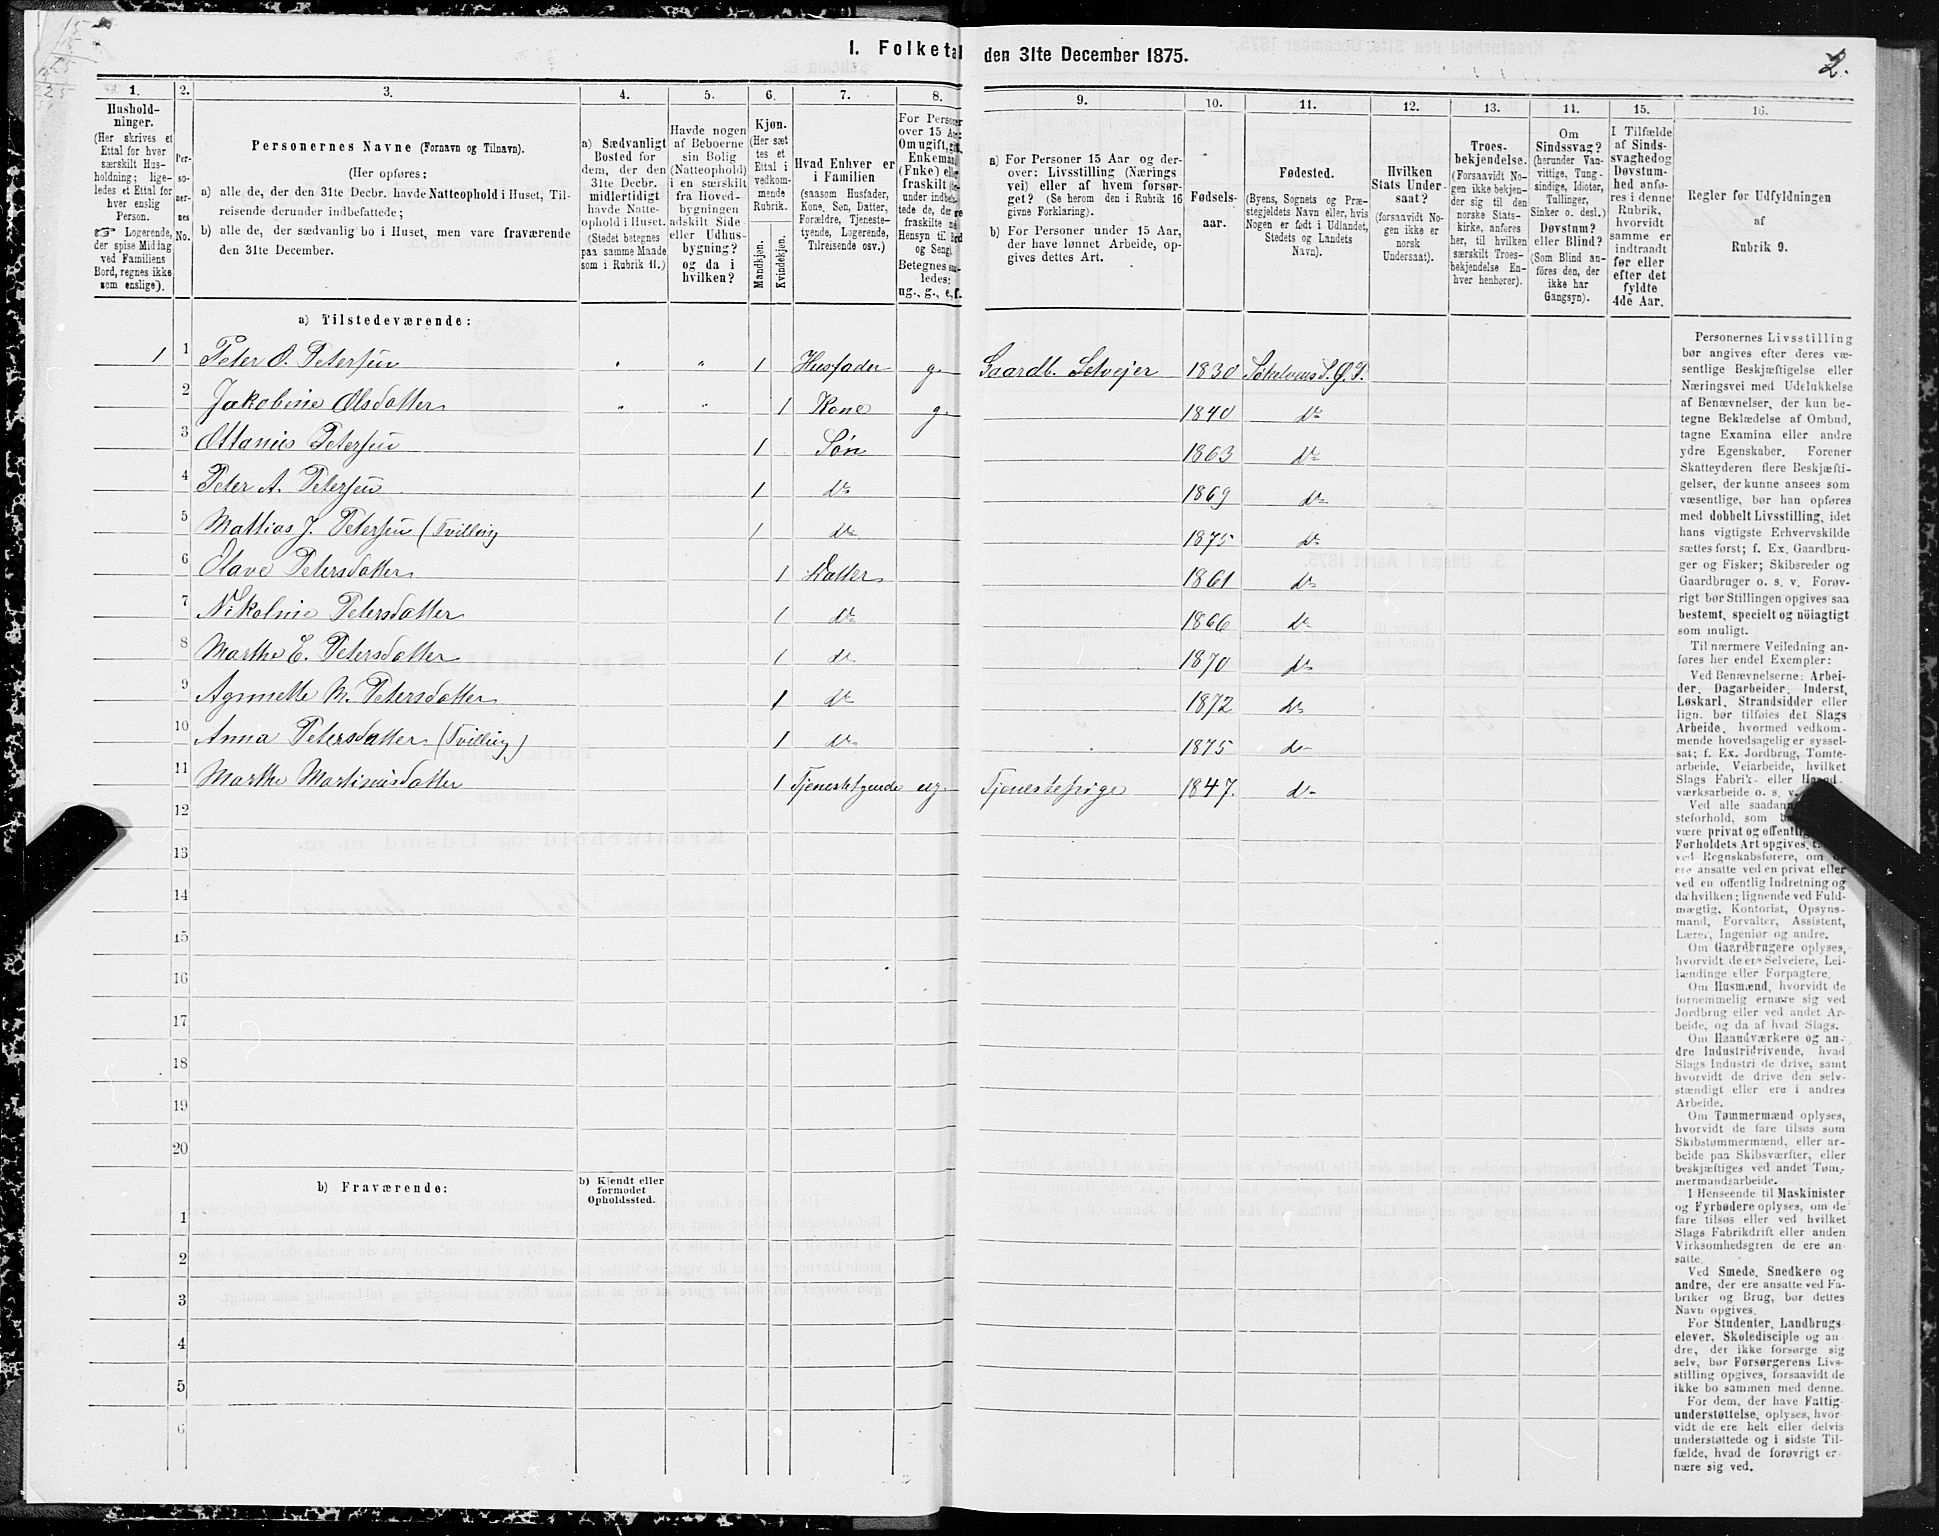 15
15
25
225
1. Folketal den 31te December 1875.
2.
1.
Hushold-
ninger.
(Her skrives et
Ettal for hver
særskilt Hus-
holdning; lige-
ledes et Ettal for
hver enslig
Person.
☞ Logerende,
der spise Middag
ved Familiens
Bord, regnes ikke
som enslige).
2.
Per-
so-
ner-
nes
No.
3.
Personernes Navne (Fornavn og Tilnavn).
(Her opføres:
a) alle de, der den 31te Decbr. havde Natteophold i Huset, Til-
reisende derunder indbefattede;
b) alle de, der sædvanlig bo i Huset, men vare fraværende
den 31te December.
4.
a) Sædvanligt
Bosted for
dem, der den
31te Decbr.
midlertidigt
havde Natte-
ophold i Huset.
(Stedet betegnes
paa samme Maade
som i Rubrik 11.)
5.
Havde nogen
af Beboerne
sin Bolig
(Natteophold)
i en særskilt
fra Hoved-
bygningen
adskilt Side
eller Udhus-
bygning?
og da i
hvilken?
6.
Kjøn.
(Her sæt
tes et
Ettal i
vedkom-
mende
Rubrik.
Mandkjøn.
Kvindekjøn.
7.
Hvad Enhver er
i Familien
(saasom Husfader,
Kone, Søn, Datter,
Forældre, Tjeneste-
tyende, Logerende,
Tilreisende osv.)
8.
For Personer
over 15 Aar:
Om ugift, gift,
Enkemand
(Enke) eller
fraskilt
Betegnes saa-
ledes:
ug., g., e, f.
9.
a) For Personer 15 Aar og der-
over: Livsstilling (Nærings
vei) eller af hvem forsør-
get? (Se herom den i Rubrik 16
givne Forklaring).
b) For Personer under 15 Aar,
der have lønnet Arbeide, op-
gives dettes Art.
10.
Fødsels-
aar.
11.
Fødested.
(Byens, Sognets og Præ-
stegjeldets Navn eller, hvis
Nogen er født i Udlandet,
Stedets og Landets
Navn).
12.
Hvilken
Stats Under-
saat?
(forsaavidt No-
gen ikke er
norsk
Undersaat).
13.
Troes-
bekjendelse.
(Forsaavidt No-
gen ikke bekjen-
der sig til den
norske Stats-
kirke, anføres
her, til hvilken
særskilt Troes-
bekjendelse En-
hver henhører).
14.
Om
Sindssvag?
(herunder Van-
vittige, Tung-
sindige, Idioter,
Tullinger,
Sinker o. desl.)
Døvstum?
eller Blind?
(Som Blind an-
føres den, der
ikke har
Gangsyn).
15.
I Tilfælde
af Sinds-
svaghedog
Døvstum-
hed anfø-
res i denne
Rubrik,
hvorvidt
samme er
indtraadt
før eller
efter det
fyldte
4de Aar.
16.
Regler før Udfyldningen
af
Rubrik 9.
a) Tilstedeværende:
1 1 Peter O. Petersen " " 1 Husfader g. Gaardb. Selvejer 1830 Søkelvens S. Ø. P.
2 Jakobine Olsdatter " " 1 Kone g. 1840 do
3 Ottanius Petersen 1 Søn 1863 do
4 Peter A. Petersen 1 do 1869 do
5 Mattias J. Petersen (Tvilling 1 do 1875 do
6 Olave Petersdatter 1 Datter 1861 do
7 Nikoline Petersdatter 1 do 1866 do
8 Marthe E. Petersdatter 1 do 1870 do
9 Agnnette M. Petersdatter 1 do 1872 do
10 Anna Petersdatter (Tvilling) 1 do 1875 do
11 Marthe Martinusdatter 1 Tjenestetyende ug. Tjenestepige 1847. do
12
13
14
15
16
17
18
19
20
b) Fraværende:
b) Kjendt eller
formodet
Opholdssted.
1
2
3
4
5
6
Personernes Livsstilling
bør angives efter deres væ-
sentlige Beskjæftigelse eller
Næringsvei med Udelukkelse
af Benævnelser, der kun be-
tegne Beklædelse af Ombud,
tagne Examina eller andre
ydre Egenskaber. Forener
Skatteyderen flere Beskjæfti-
gelser, der kunne ansees som
væsentlige, bør han opføres
med dobbelt Livsstilling, idet
hans vigtigste Erhvervskilde
sættes først; f. Ex. Gaardbru-
ger og Fisker; Skibsreder og
Gaardbruger o. s. v. Forøv-
rigt bør Stillingen opgives saa
bestemt, specielt og nöiagtigt
som muligt.
Til nærmere Veiledning an-
føres her endel Exempler:
Ved Benævnelserne: Arbei-
der, Dagarbeider, Inderst,
Løskarl, Strandsidder eller
lign. bør tilføies det Slags
Arbeide, hvormed vedkom-
mende hovedsagelig er syssel-
sat; f. Ex. Jordbrug, Tomte-
arbeide, Veiarbeide, hvilket
Slags Fabrik- eller Haand-
værksarbeide o. s. v.
Ved alle saadanne
steforhold, som
være privat og offentlig
Forholdets Art opgives,
ved Regnskabsførere, om
ere ansatte ved en privat eller
ved en offentlig Indretning og
da hvilken; lignende ved Fuld-
mægtig, Kontorist, Opsyns-
mand, Forvalter, Assistent,
Lærer, Ingeniør og andre.
Om Gaardbrugere oplyses,
hvorvidt de ere Selveiere, Lei-
lændinge eller Forpagtere.
Om Husmænd, hvorvidt de
fornemmelig ernære sig ved
Jordbrug eller ved andet Ar-
beide, og da af hvad Slags.
Om Haandværkere og an-
dre Industridrivende, hvad
Slags Industri de drive, samt
hvorvidt de drive den selv-
stændigt eller ere i andres
Arbeide.
Om Tømmermænd oplyses,
hvorvidt de fare tilsøs som
Skibstømmermænd, eller ar-
beide paa Skibsværfter, eller
beskjæftiges ved andet Tøm-
mermandsarbeide.
I Henseende til Maskinister
og Fyrbødere oplyses, om de
fare tilsøs eller ved hvilket
Slags Fabrikdrift eller anden
Virksomhedsgren de ere an-
satte.
Ved Smede, Snedkere og
andre, der ere ansatte ved Fa-
briker og Brug, bør dettes
Navn opgives.
For Studenter, Landbrugs-
elever, Skoledisciple og an-
dre, der ikke forsørge sig
selv, bør Forsørgerens Livs-
stilling opgives, forsaavidt de
ikke bo sammen med denne.
For dem, der have Fattig-
understøttelse, oplyses, hvor-
vidt de ere helt eller delvis
understøttede og i sidste Til-
fælde, hvad de forøvrigt er-
nære sig ved.